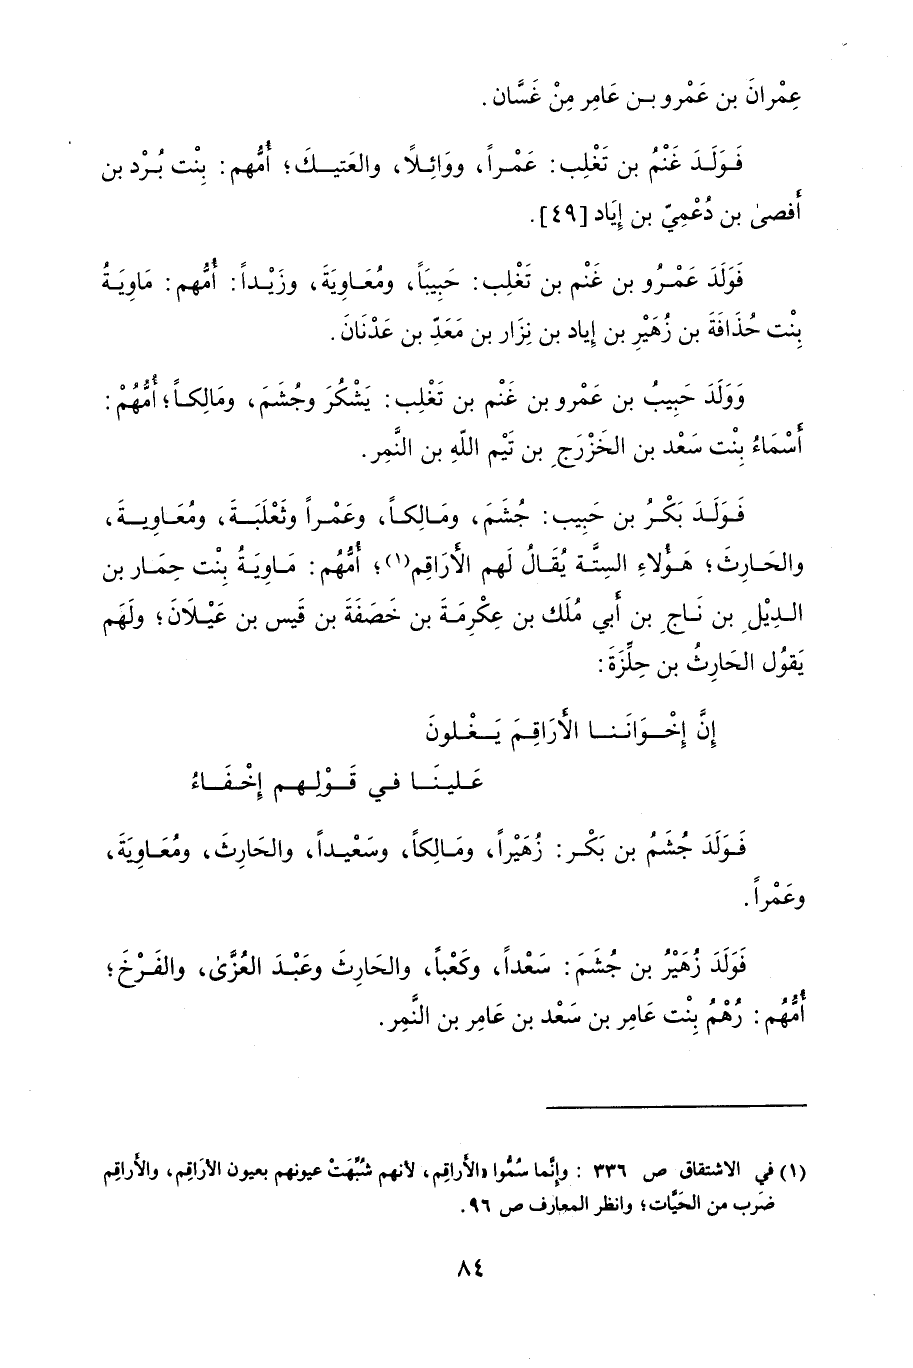 عِمْرانَ بن عَمْرو بـن عَامِر مِنْ غَسَّان .
فَـوَلَـدَ غَنْمُ بن تَغْلِب : عَمْـراً، ووَائِـلاً، والعَتيـكَ؛ أُمُّهم : بِنْت بُرْد بن
أَفصىٰ بن دُعْمِيّ بن إِيَاد [٤٩].
فَوَلَدَ عَمْـرُو بن غَنْم بن تَغْلِب : حَبِيبَاً، ومُعَـاوِيَةَ، وزَيْـداً : أُمُّهم : مَاوِيَةُ
بِنْت حُذَافَةَ بن زُهَيْرِ بن إياد بن نِزَار بن مَعَدِّ بن عَدْنَانَ .
وَوَلَدَ حَبِيبُ بن عَمْرو بن غَنْم بن تَغْلِب : يَشْكُرَ وجُشَمَ، ومَالِكـاً؛ أُمُّهُمْ :
أَسْمَاءُ بِنْت سَعْد بن الخَزْرَجِ بن تَيْم اللّهِ بن النَّمِر .
فَـوَلَـدَ بَكْـرُ بن حَبِيب : جُشَمَ، ومَـالِكـاً، وعَمْـراً وثَعْلَبَـةَ، ومُعَـاوِيـةَ،
والحَـارِثَ؛ هَـؤُلاءِ السِتَّـة يُقَـالُ لَهم الأَرَاقِم(١)؛ أُمُّهُم : مَـاوِيَةُ بِنْت حِمَـار بن
الـدِيْلِ بن نَـاجِ بن أَبي مُلَك بن عِكْرِمَـةَ بن خَصَفَةَ بن قَيس بن عَيْـلَانَ؛ ولَهَم
يَقوُل الحَارِثُ بن حِلِّزَةَ :
إِنَّ إِخْــوَانَـنـا الأَرَاقِـمَ يَــغْـلـونَ
عَـلـينَـا فـي قَـوْلِـهـم إِخْـفَـاءُ
فَـوَلَدَ جُشَمُ بن بَكْـر : زُهَيْراً، ومَـالِكاً، وسَعْيـداً، والحَارِثَ، ومُعَـاوِيَةَ،
وعَمْراً .
فَوَلَدَ زُهَيْرُ بن جُشَمَ : سَعْداً، وكَعْباً، والحَارِثَ وعَبْـدَ العُزَّىٰ، والفَـرْخَ؛
أُمُّهُم : رُهْمُ بِنْت عَامِر بن سَعْد بن عَامِر بن النَّمِر .
(١) في الاشتقاق ص ٣٣٦ : وإِنَّما سُمُّوا «الأَراقِم، لأنهم شُبِّهَتْ عيونهم بعيون الأَرَاقِم، والأَراقِم
ضَرب من الحَيَّات؛ وانظر المعارف ص ٩٦.
٨٤